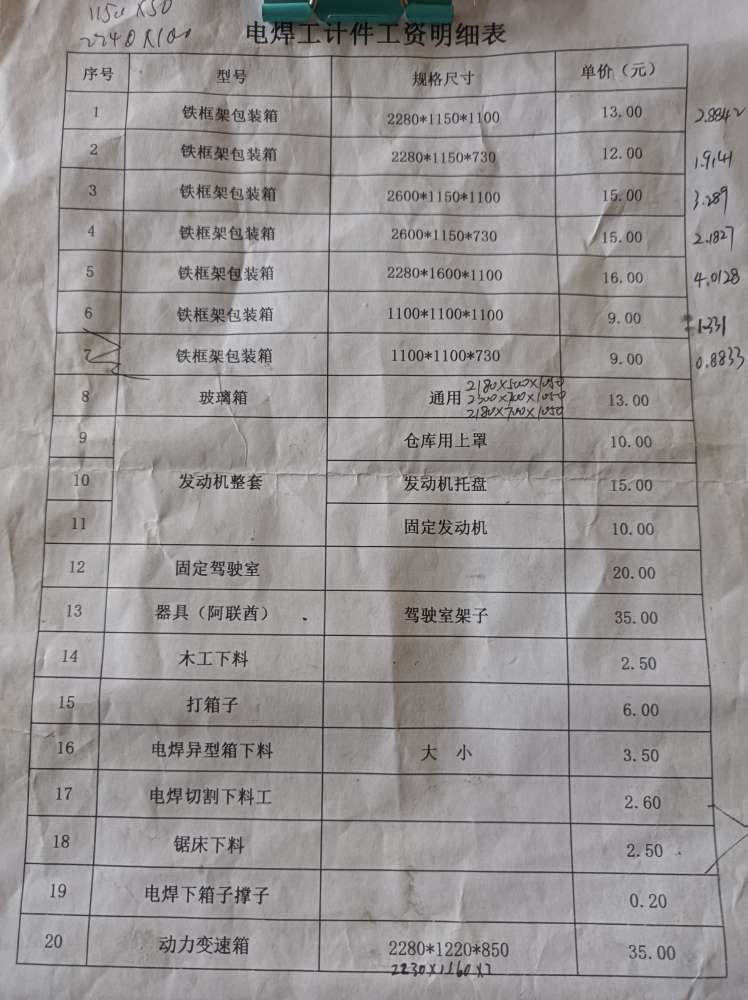 1150×50
2240×100
电焊工计件工资明细表
序号 型号 规格尺寸 单价（元）
1 铁框架包装箱 2280*1150*1100 13.00 2.8842
2 铁框架包装箱 2280*1150*730 12.00 1.9141
3 铁框架包装箱 2600*1150*1100 15.00 3.289
4 铁框架包装箱 2600*1150*730 15.00 2.1827
5 铁框架包装箱 2280*1600*1100 16.00 4.0128
6 铁框架包装箱 1100*1100*1100 9.00 1.331
7 铁框架包装箱 1100*1100*730 9.00 0.8833
8 玻璃箱 通用 2180×500×1050 13.00
2300×700×1050
2180×700×1050
9 仓库用上罩 10.00
10 发动机整套 发动机托盘 15.00
11 固定发动机 10.00
12 固定驾驶室 20.00
13 器具（阿联酋） 驾驶室架子 35.00
14 木工下料 2.50
15 打箱子 6.00
16 电焊异型箱下料 大 小 3.50
17 电焊切割下料工 2.60
18 锯床下料 2.50
19 电焊下箱子撑子 0.20
20 动力变速箱 2280*1220*850 35.00
2230×1160×